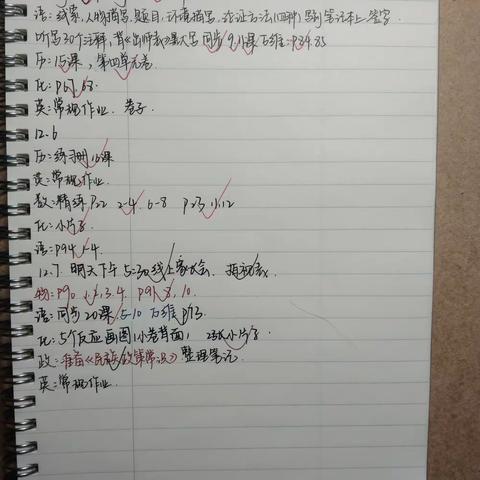 语:线索,人物描写,题目,环境描写,论证方法(四种)写到笔记本上.签字
听写30个注释,背《出师表》默写 同步 9,11课 万维:P84.85
历:15课,第四单元卷
化:P67.68
英:常规作业. 卷子.
12.6
历:练习册16课
英:常规作业.
数:精练P22 2-4. 6-8 P23 11.12
化:小片子
语:P94 1-4.
12.7 明天下午 5:30线上家长会.
物:P90 3.4. P91 8. 10.
语:同步20课 5-10 万维 P13
化:5个反应画图(小卷背面)
政: 整理笔记.
英:常规作业.